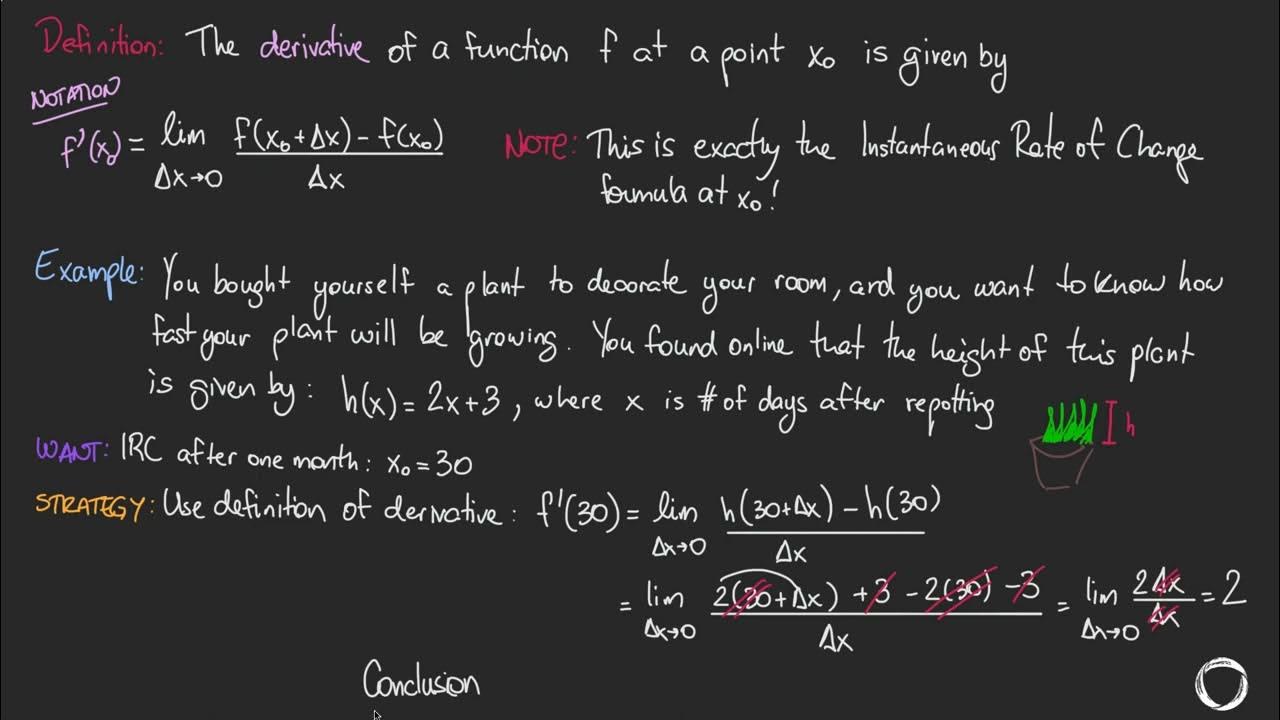 Definition: The derivative of a function f at a point x₀ is given by
NOTATION
f'(x₀) = lim Δx→0 (f(x₀+Δx) - f(x₀)) / Δx
NOTE: This is exactly the Instantaneous Rate of Change
formula at x₀!
Example: You bought yourself a plant to decorate your room, and you want to know how
fast your plant will be growing. You found online that the height of this plant
is given by: h(x) = 2x+3, where x is # of days after repotting
h
WANT: IRC after one month: x₀ = 30
STRATEGY: Use definition of derivative: f'(30) = lim Δx→0 (h(30+Δx) - h(30)) / Δx
= lim Δx→0 (2(30+Δx) + 3 - 2(30) - 3) / Δx = lim Δx→0 2Δx / Δx = 2
Conclusion